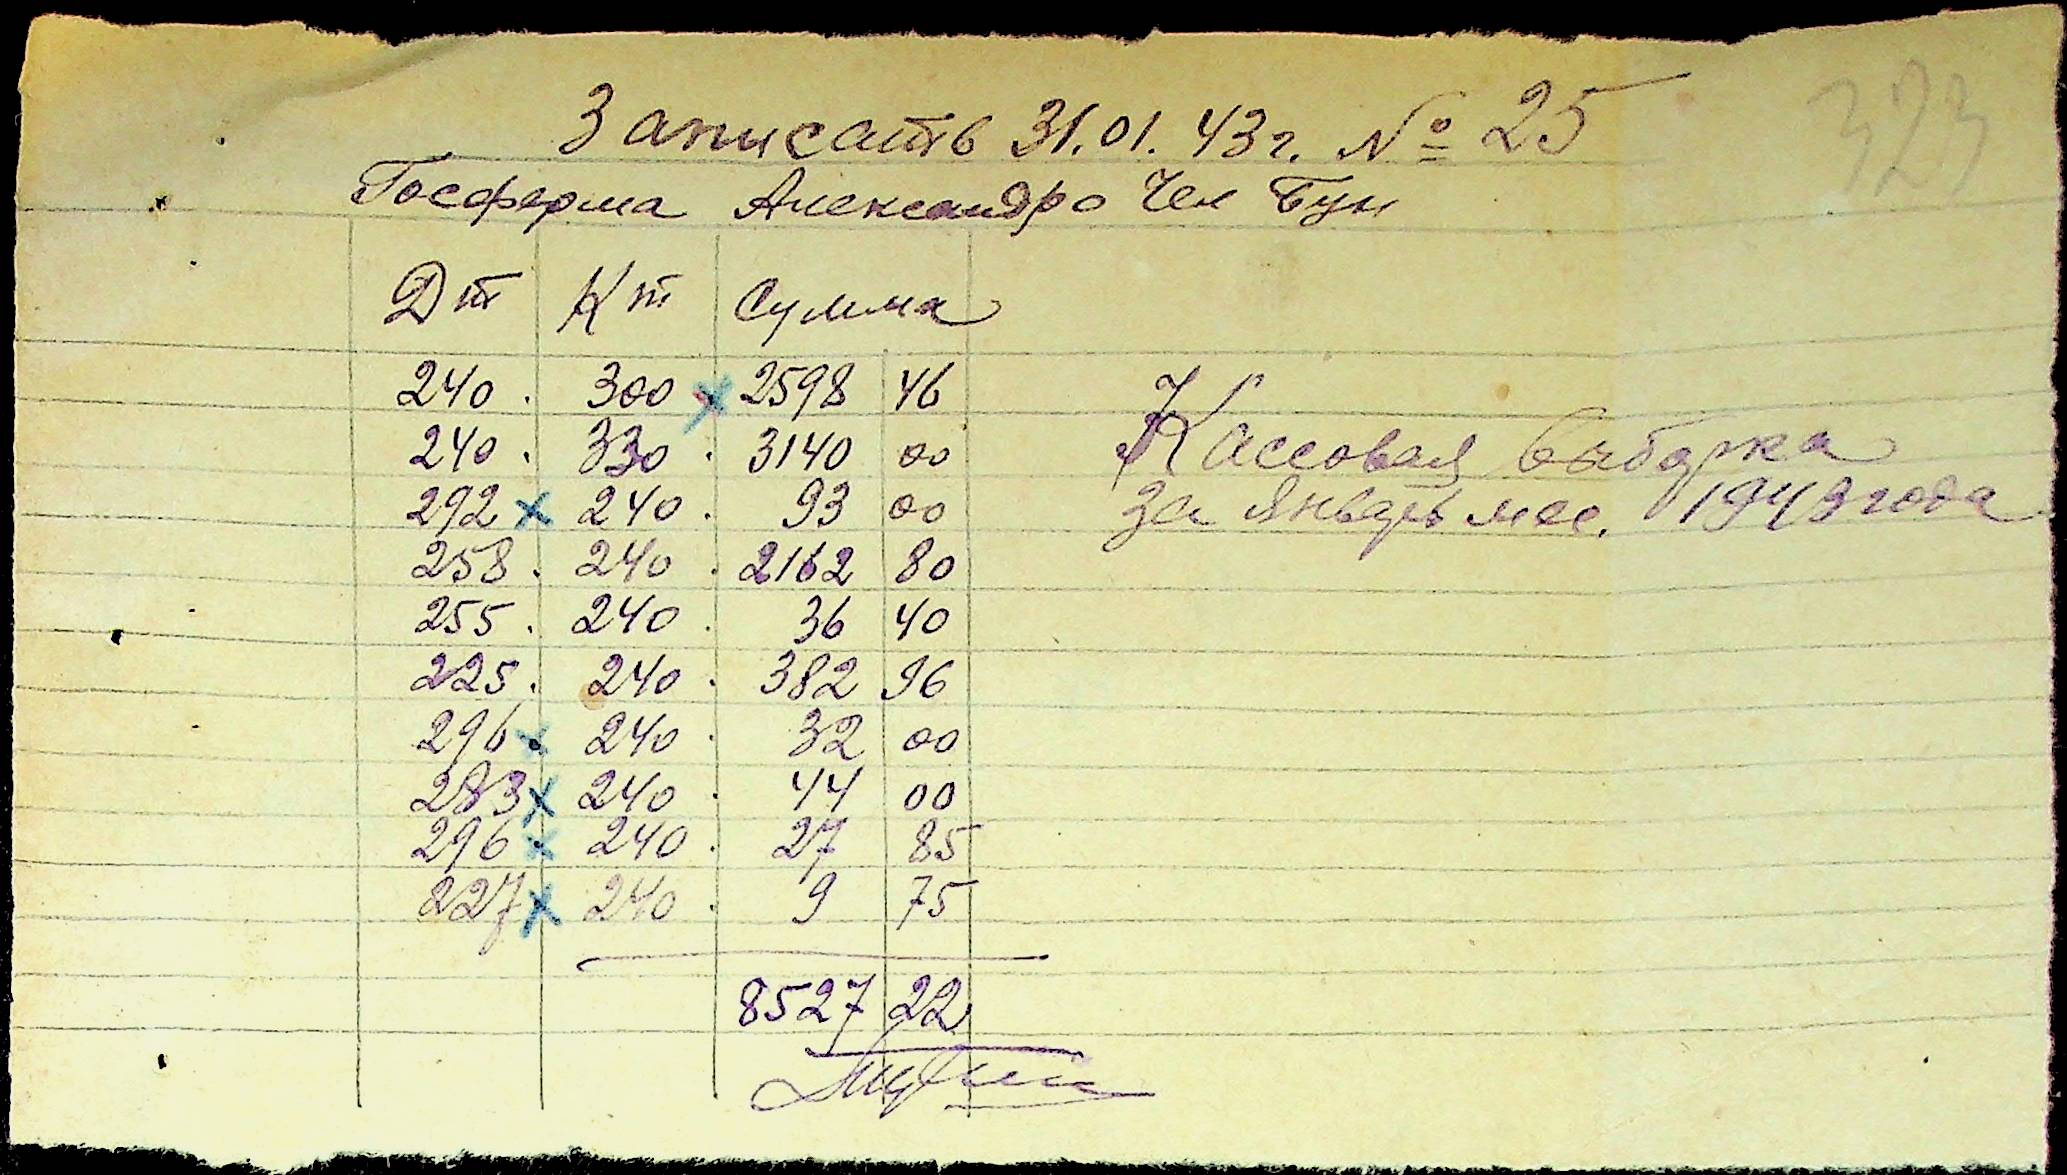 323
Записать 31.01.43г. № 25
Госферма Александро Чел Бун
Дт Кт Сумма
240 . 300 x 2598 46
240 . 330 . 3140 00
292 x 240 . 93 00
258 . 240 . 2162 80
255 . 240 . 36 40
225 . 240 . 382 96
296 x 240 . 32 00
283 x 240 . 44 00
296 x 240 . 27 85
227 x 240 . 9 75
8527 22
Кассовая выборка
за январь мес. 1943 года